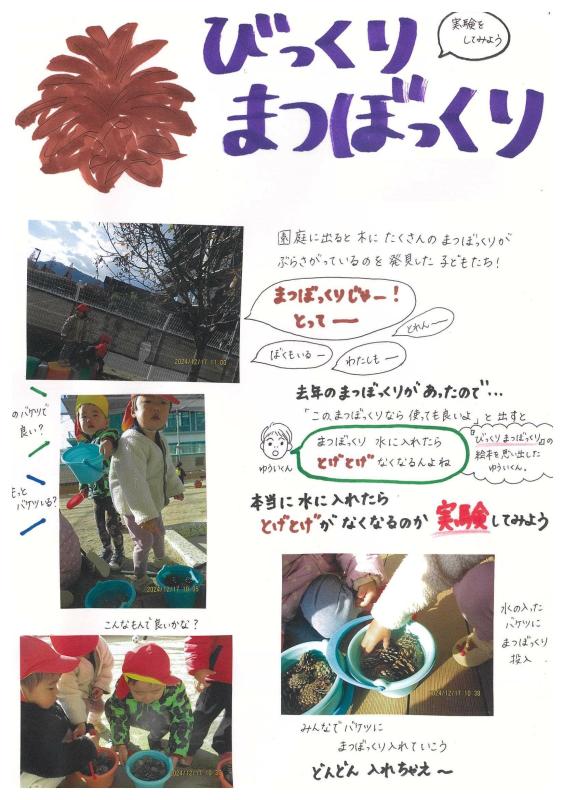 びっくり
まつぼっくり
実験を
してみよう
園庭に出ると木にたくさんのまつぼっくりが
ぶらさがっているのを発見した子どもたち！
まつぼっくりじゃー！
とってー
とれんー
ぼくもいるー
わたしもー
2024/12/17 11:00
去年のまつぼっくりがあったので…
「このまつぼっくりなら使っても良いよ」と出すと
ゆういくん
まつぼっくり 水に入れたら
とげとげなくなるんよね
『びっくりまつぼっくり』の
絵本を思い出した
ゆういくん。
のバケツで
良い？
もっと
バケツいる？
2024/12/17 10:05
本当に水に入れたら
とげとげがなくなるのか実験してみよう
こんなもんで良いかな？
2024/12/17 10:38
水の入った
バケツに
まつぼっくり
投入
みんなでバケツに
まつぼっくり入れていこう
どんどん入れちゃえ〜